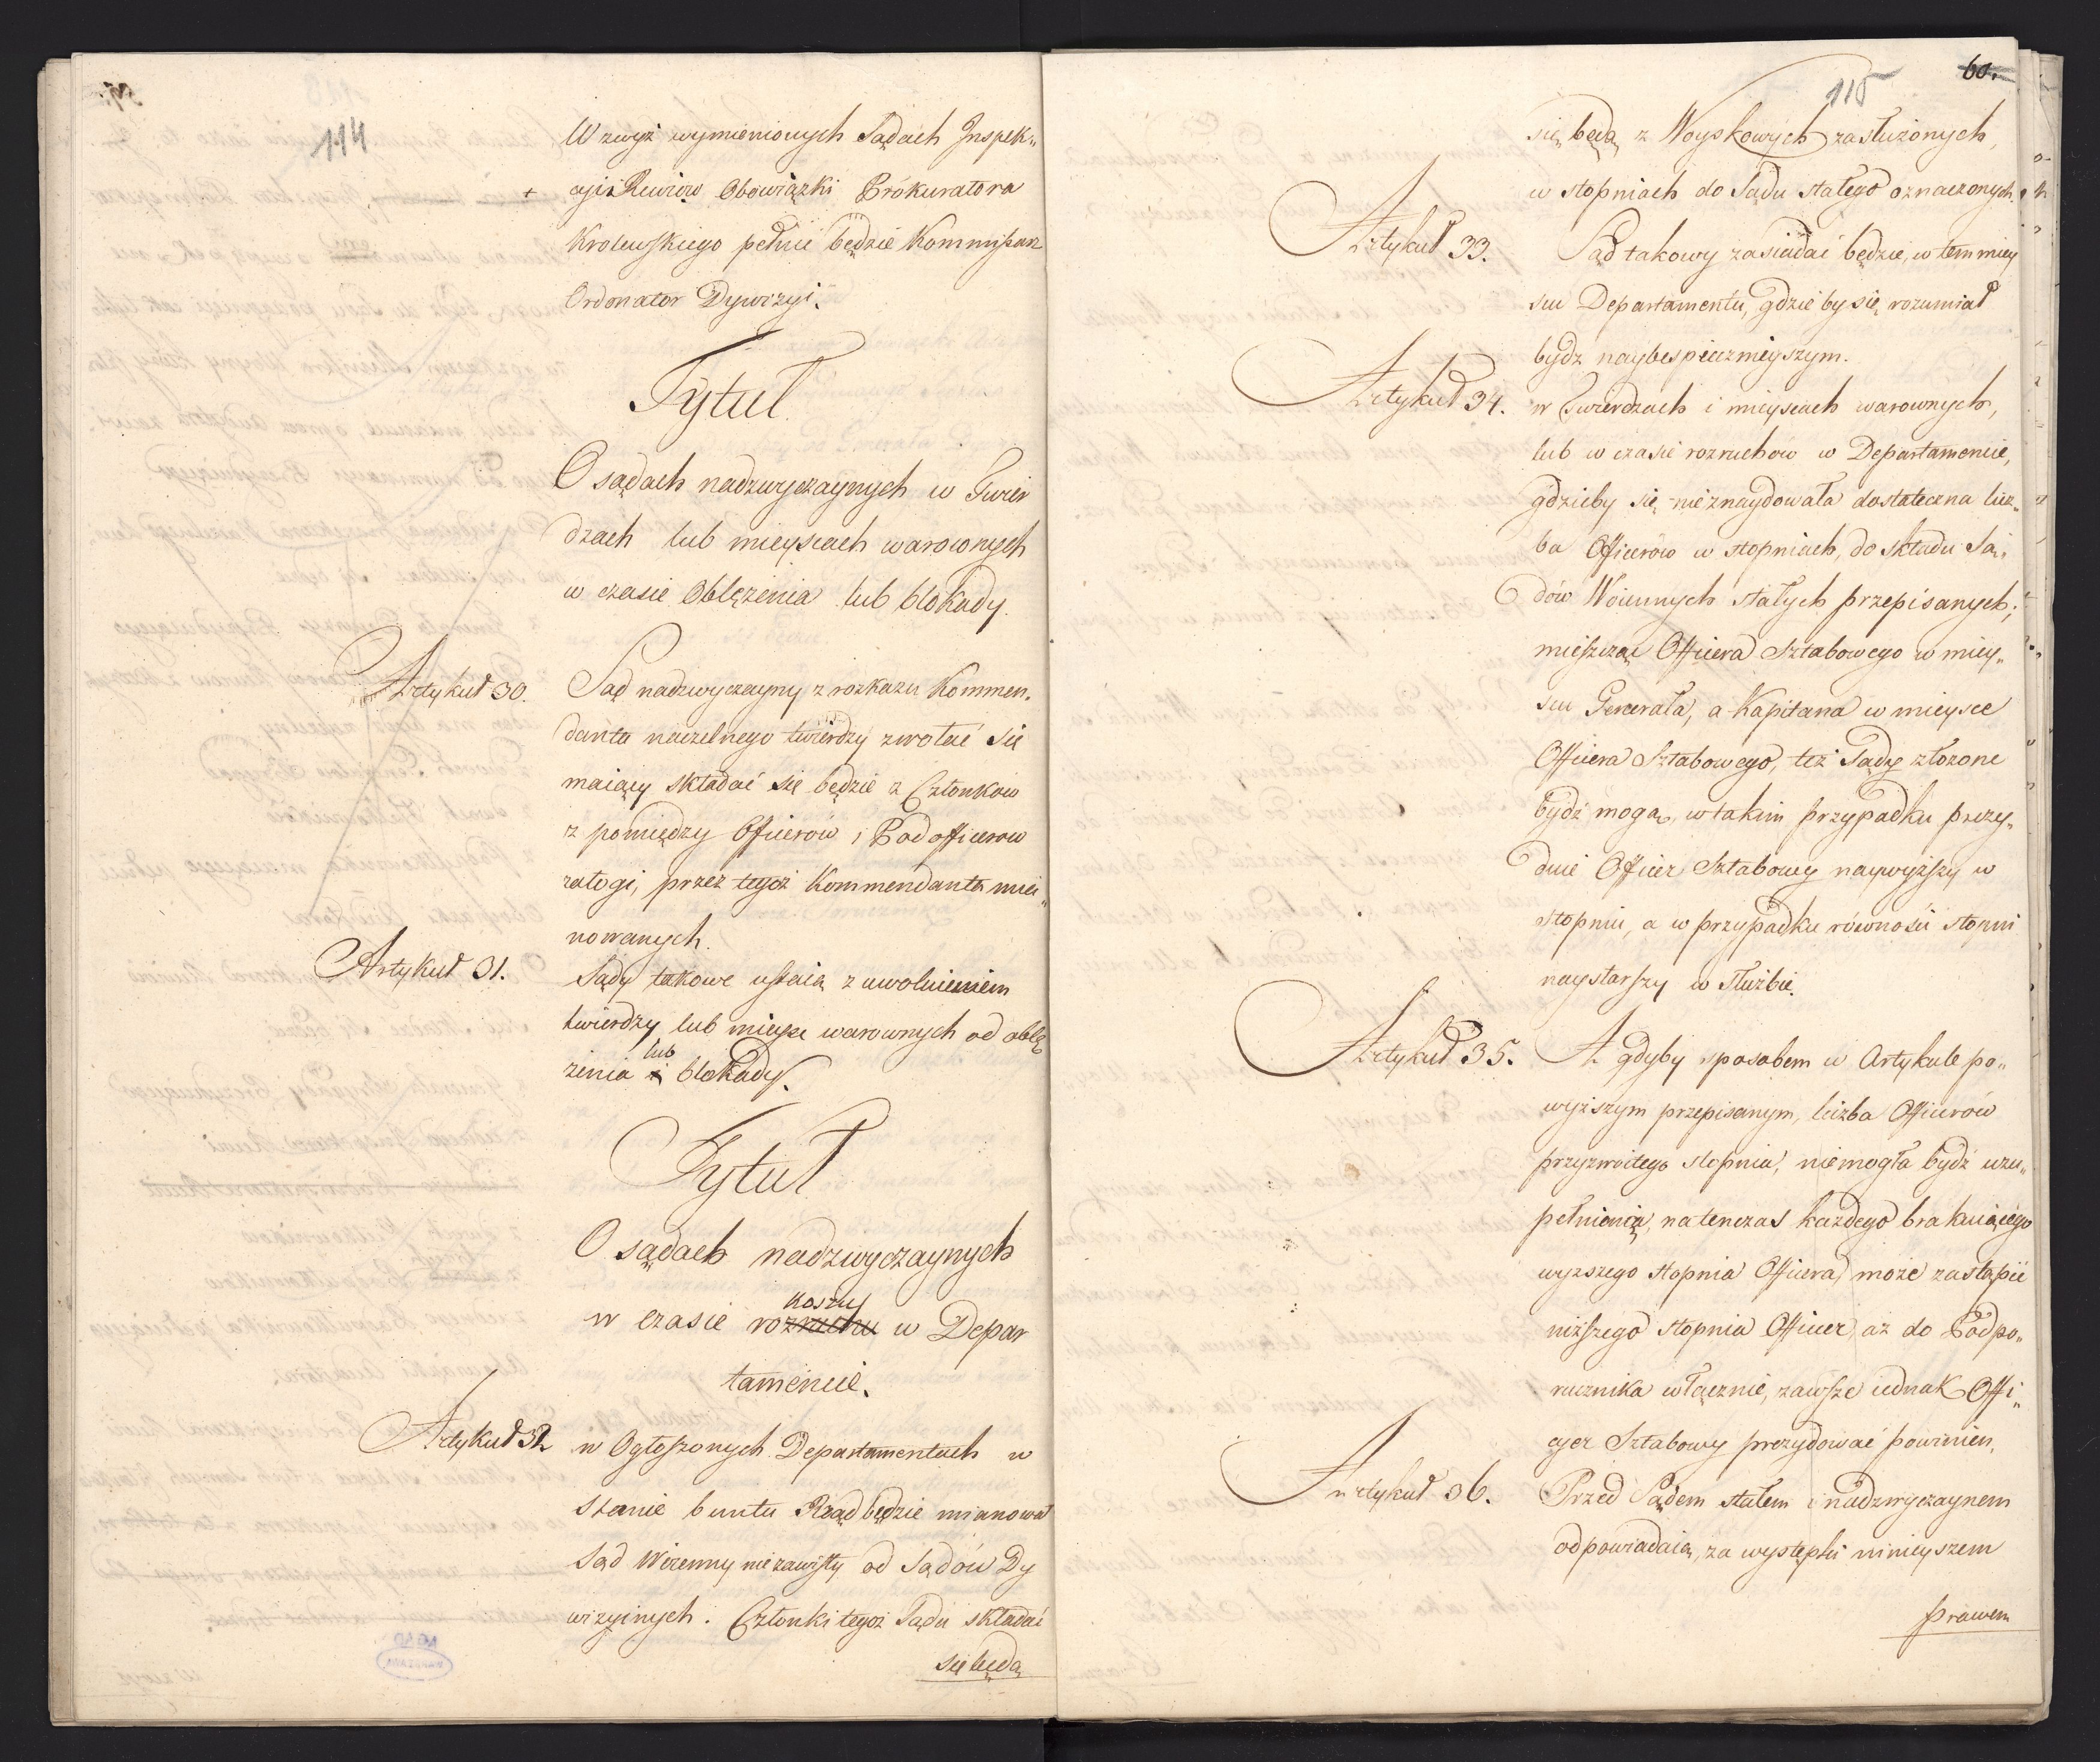 114
W zwyż wymienionych Sądach Inspek„
+ cyi i Rewiow Obowiązki Prokuratora
Krolewskiego pełnić będzie Kommissarz
Ordonator Dywizyi.
Tytuł
O sądach nadzwyczaynych w Twier
dzach lub mieyscach warownych
w czasie Oblężenia lub blokady.
Artykuł 30. Sąd nadzwyczayny z rozkazu Kommen„
danta naczelnego twierdzy zwołać się
maiący składać się będzie z Członkow
z pomiędzy Officerow i Podofficerow
załogi, przez tegoż Kommendanta mia„
nowanych.
Artykuł 31. Sądy takowe ustaią z uwolnieniem
twierdzy lub mieysc warownych od oblę
lub
żenia i blokady.
Tytuł
O sądach nadzwyczaynych
koszu
w czasie rozruchu w Depar
tamencie.
Artykuł 32 w Ogłoszonych Departamentach w
Stanie buntu Rząd będzie mianował
Sąd Woienny niezawisły od Sądów Dy
wizyinych. Członki tegoż Sądu składać
się będą
60.
115
się będą z Woyskowych zasłużonych,
w stopniach do Sądu stałego oznaczonych.
Artykuł 33. Sąd takowy zasiadać będzie, w tem miey
scu Departamentu, gdzie by się rozumiał
bydz naybespiecznieyszym.
Artykuł 34. w Twierdzach i mieyscach warownych,
lub w czasie rozruchow w Departamencie,
gdzieby się nieznaydowała dostateczna licz„
ba Officerów w stopniach, do składu Są„
dów Woiennych stałych przepisanych;
mieszcząc Officera Sztabowego w miey„
scu Generała, a Kapitana w mieysce
Officera Sztabowego, też Sądy złożone
bydź mogą, w takim przypadku prezy„
duie Officer Sztabowy naywyższy w
stopniu, a w przypadku równości stopni
naystarszy w służbie.
Artykuł 35. A gdyby sposobem w Artykule po„
wyższym przepisanym, liczba Officerów
przyzwoitego stopnia, niemogła bydź uzu„
pełnioną, natenczas każdego brakuiącego
wyższego stopnia Officera, może zastąpić
niższego stopnia Officer, aż do Podpo„
rucznika włącznie, zawsze iednak Offi„
cyer Sztabowy prezydować powinien.
Artykuł 36. Przed Sądem stałem i nadzwyczaynem
odpowiadaią, za występki ninieyszem
prawem